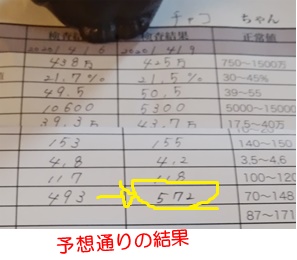 チャコ ちゃん
検査結果 検査結果 正常値
2020/4/6 2020/4/9
438万 425万 750～1500万
21.7% 21.5% 30～45%
49.5 50.5 39～55
10600 5300 5000～15000
39.3万 43.7万 17.5～40万
153 155 140～150
4.8 4.2 3.5～4.6
117 118 100～120
493 572 70～148
87～171
予想通りの結果